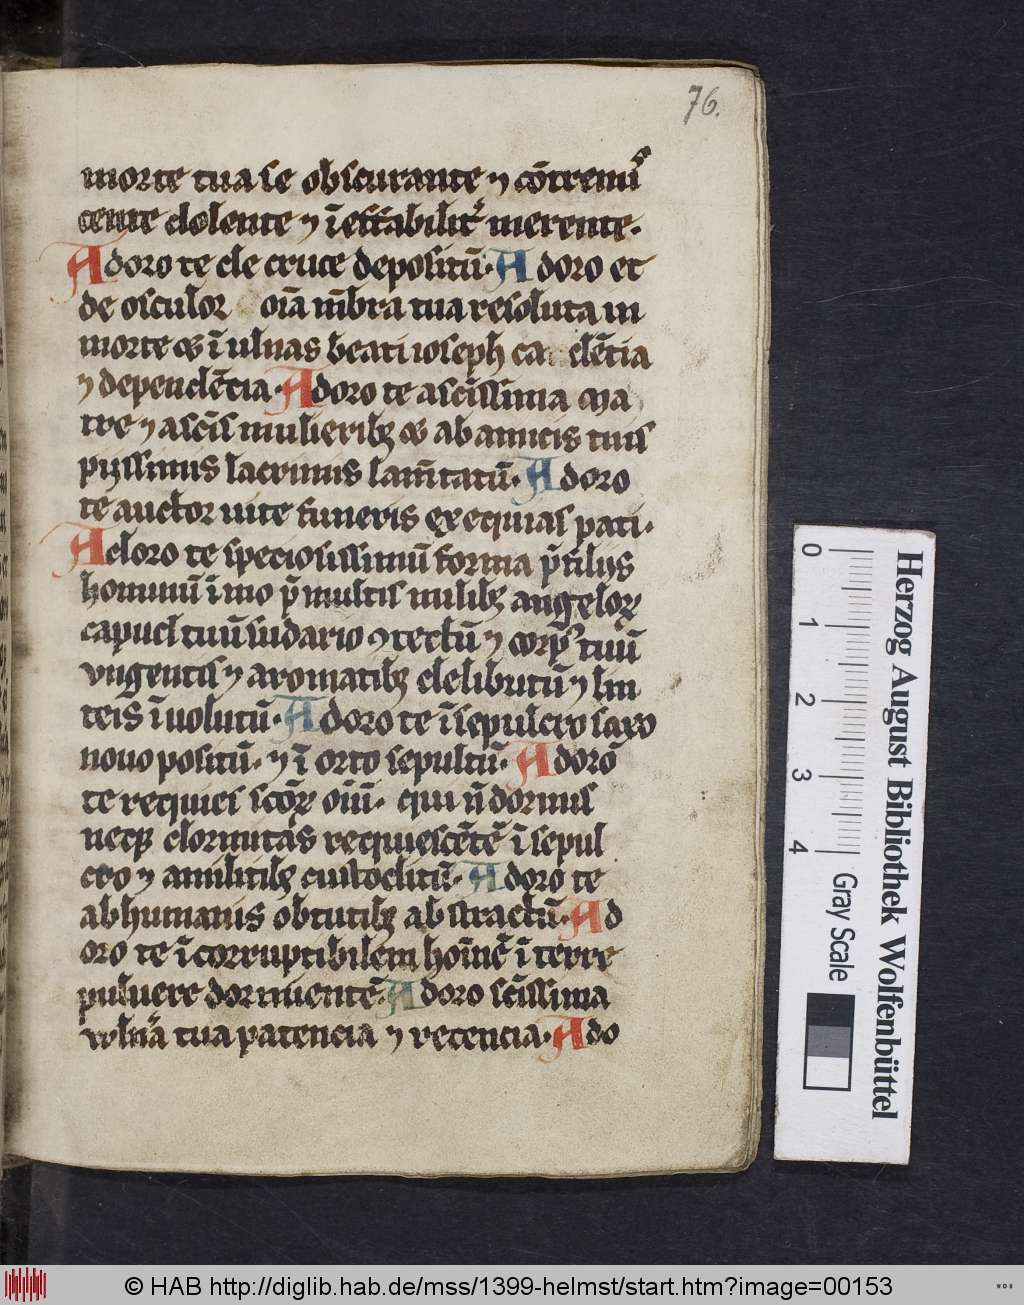 76.
morte tua se obscurante ⁊ cōtremiˢ
cente dolente ⁊ īeffabilit᷒ merente.
Adoro te de cruce depositū. Adoro et
de osculor oīa m̄bra tua resoluta in
morte ⁊ ī ulnas beati ioseph ca dētia
⁊ dependētia. Adoro te a scīssima ma
tre ⁊ a scīs mulierib᷒ ⁊ ab amicis tuis
pijssimis lacrimis lam̄tatū. Adoro
te auctor uite funeris exequias pati.
Adoro te speciosissimū forma p̄ filijs
hominū īmo p̄ multis milib᷒ angeloꝝ
caput tuū sudario ꝯtectū ⁊ corp᷒ tuū
vngentis ⁊ aromatib᷒ delibutū ⁊ lin
teis īuolutū. Adoro te ī sepulcro saxo
nouo positū. ⁊ ī orto sepultū. Adoro
te requies scōꝝ oīū. qui n̄ dormis
neqꝫ dormitas requiescētē ī sepul
cro ⁊ a militib᷒ custoditū. Adoro te
ab humanis obtutib᷒ abstractū. Ad
oro te īcorruptibilem hoīnē ī terre
puluere dormientē. Adoro scīssima
wln̄a tua patencia ⁊ recencia. Ado
0 1 2 3 4
Gray Scale
Herzog August Bibliothek Wolfenbüttel
© HAB http://diglib.hab.de/mss/1399-helmst/start.htm?image=00153